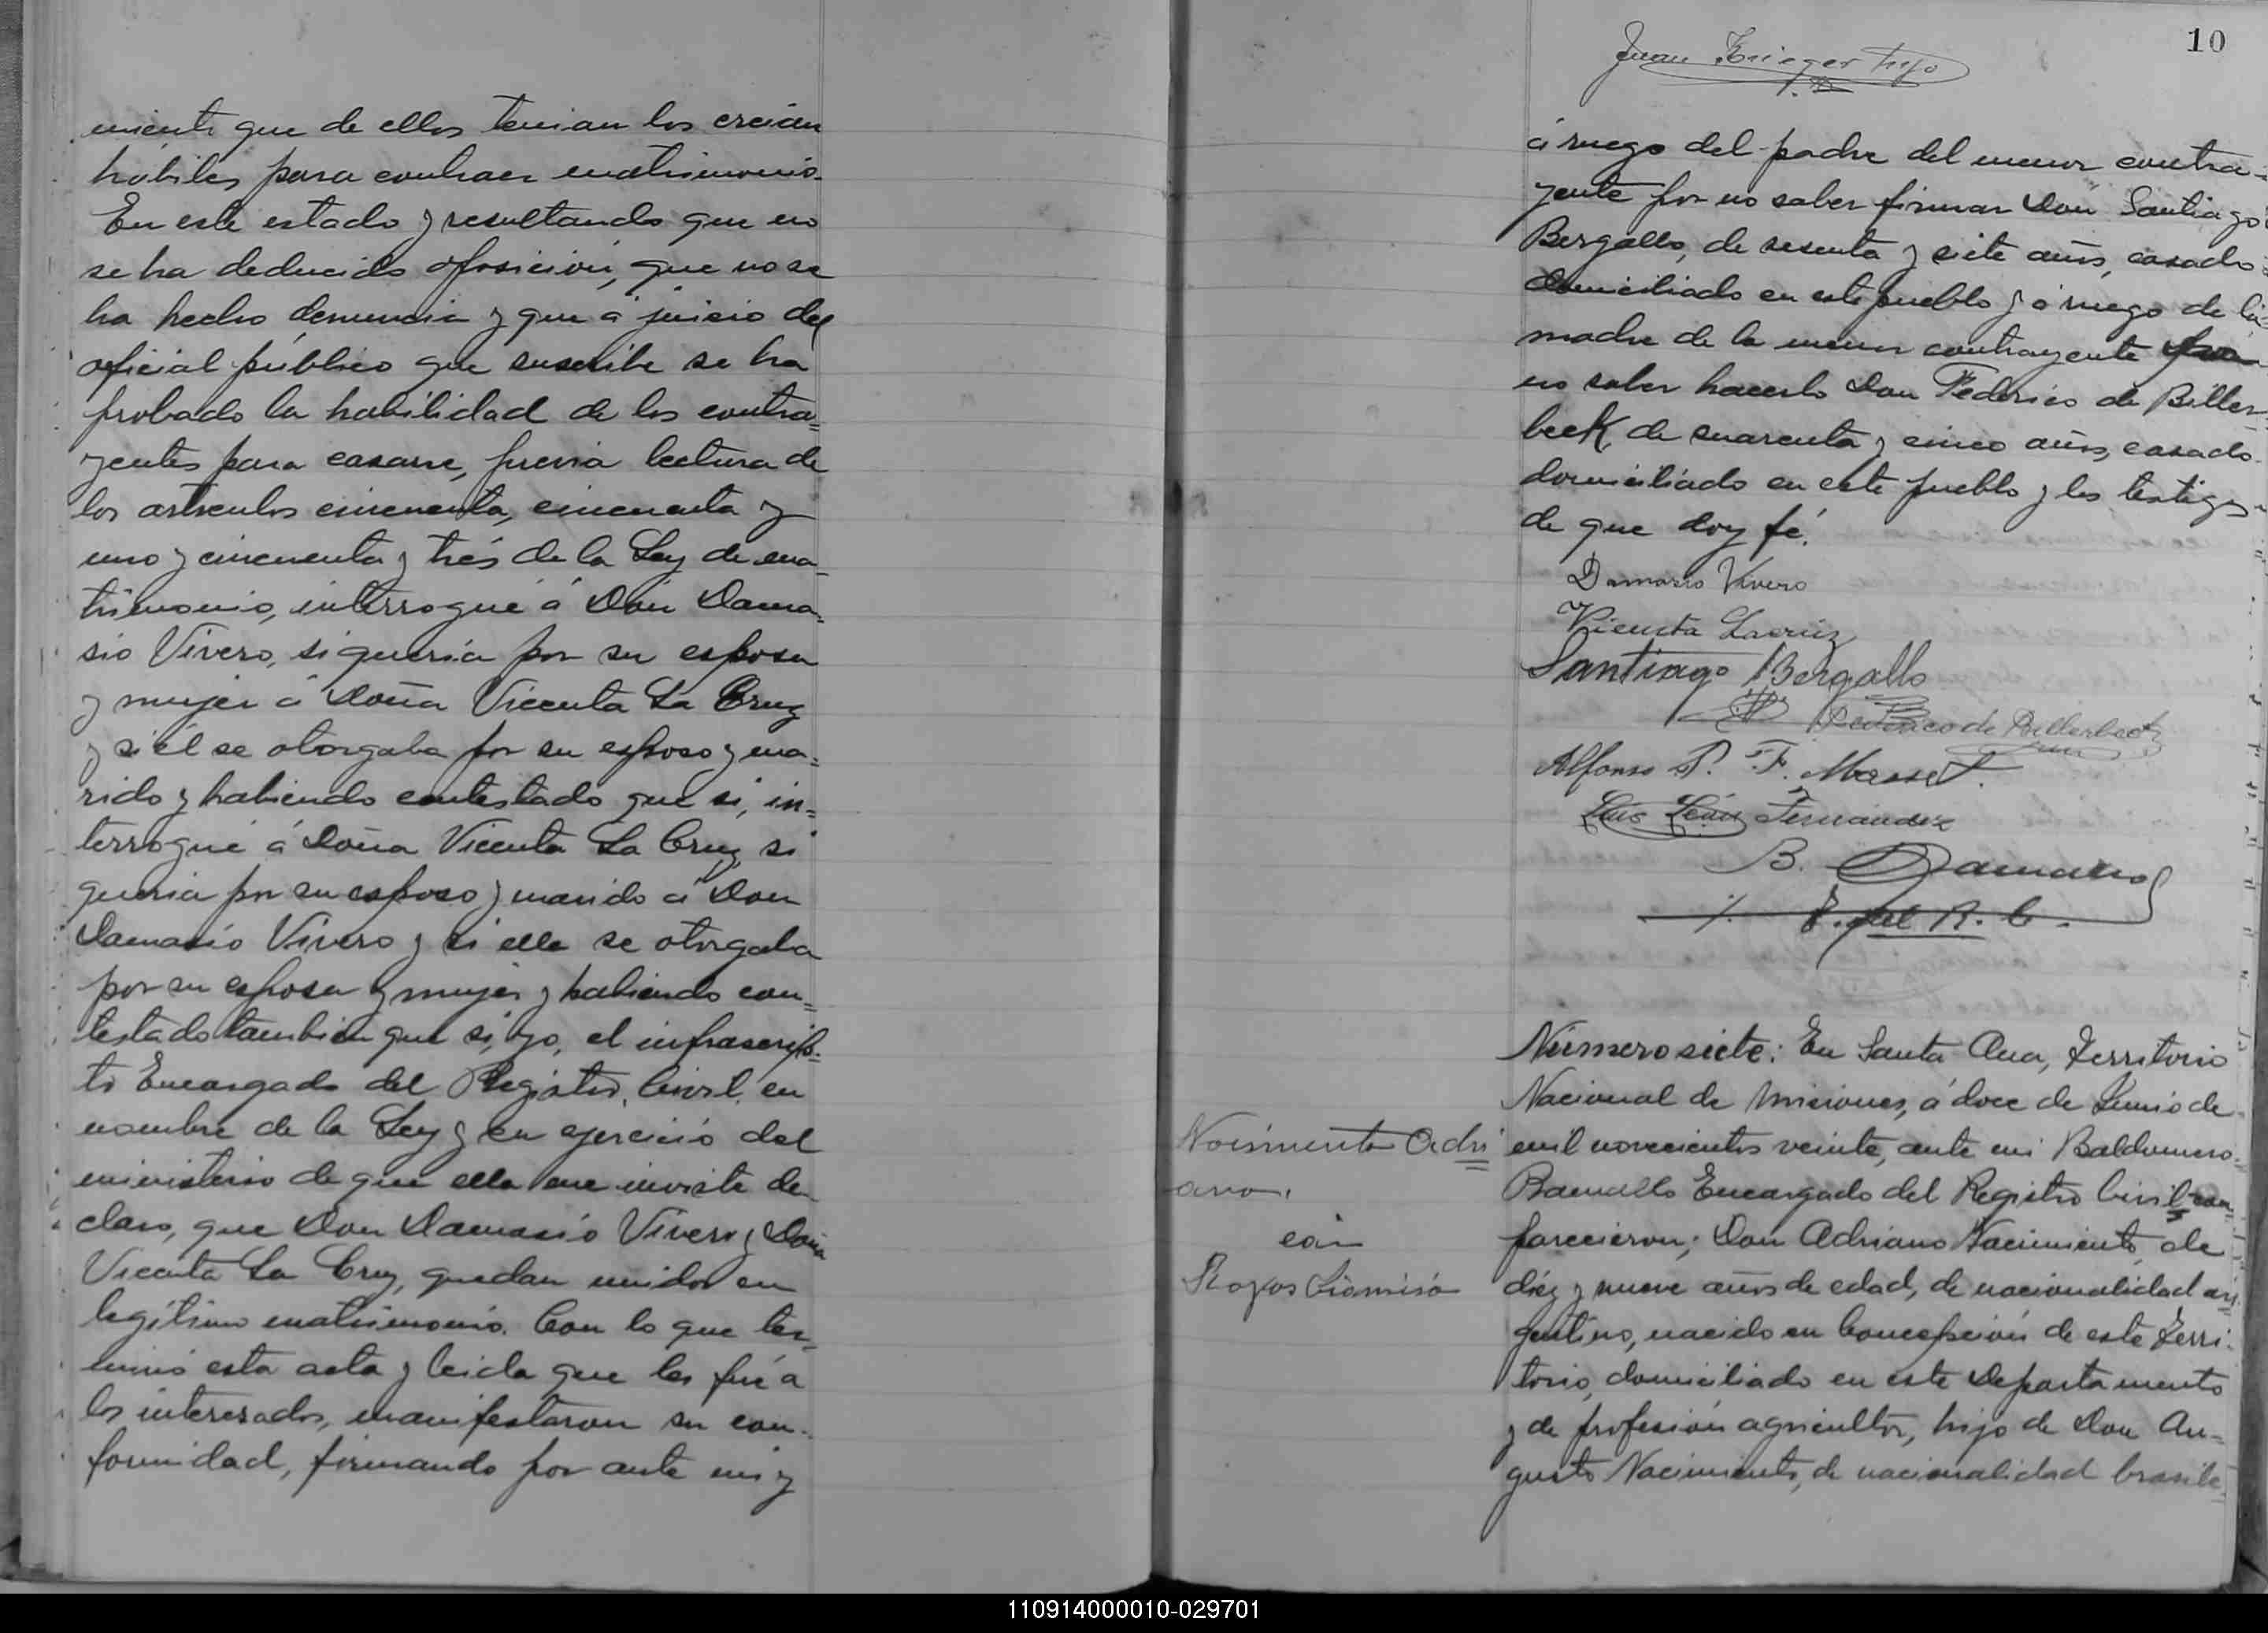 miento que de ellos tenian los creian
hábiles para contraer matrimonio.
En este estado y resultando que no
se ha deducido oposición, que no se
ha hecho denuncia y que á juicio del
oficial público que suscribe se ha
probado la habilidad de los contra=
yentes para casarse, previa lectura de
los artículos cincuenta, cincuenta y
uno y cincuenta y trés de la Ley de ma=
trimonio, interrogué á Don Dama=
sio Vivero, si queria por su esposa
y mujer á Doña Vicenta La Cruz
y si él se otorgaba por su esposo y ma=
rido y habiendo contestado que si, in=
terrogué á Doña Vicenta La Cruz, si
queria por su esposo y marido á Don
Damasio Vivero y si ella se otorgaba
por su esposa y mujer y habiendo con=
testado tambien que si, yo, el infrascrip=
to Encargado del Registro Civil, en
nombre de la Ley y en ejercicio del
ministerio de que ella me inviste de=
claro, que Don Damasio Vivero y Doña
Vicenta La Cruz, quedan unidos en
legítimo matrimonio. Con lo que ter=
minó esta acta y leida que les fué a
los interesados, manifestaron su con=
formidad, firmando por ante mi y
10
Juan Krieger hijo
á ruego del padre del menor contra=
yente por no saber firmar Don Santiago
Bergallo, de sesenta y siete años, casado
domiciliado en este pueblo y á ruego de la
madre de la menor contrayente por
no saber hacerlo Don Federico de Biller
beck, de cuarenta y cinco años, casado
domiciliado en este pueblo y los testigos
de que doy fé.
Damasio Vivero
Vicenta Lacruz
Santiago Bergallo
Federico de Billerbeck
Alfonso P. F. Masset.
Luis León Fernandez
B. Bamallo
E. del R. C.
Número siete: En Santa Ana, Territorio
Nacional de Misiones, á doce de Junio de
mil novecientos veinte, ante mi Baldomero
Encargado del Registro Civil com=
parecieron; Don Adriano Nacimiento de
diéz y nueve años de edad, de nacionalidad ar=
gentino, nacido en Concepción de este Terri=
torio, domiciliado en este Departamento
y de profesión agricultor, hijo de Don Au=
gusto Nacimiento, de nacionalidad brasile=
Nacimiento Adri
ano,
con
Rojas